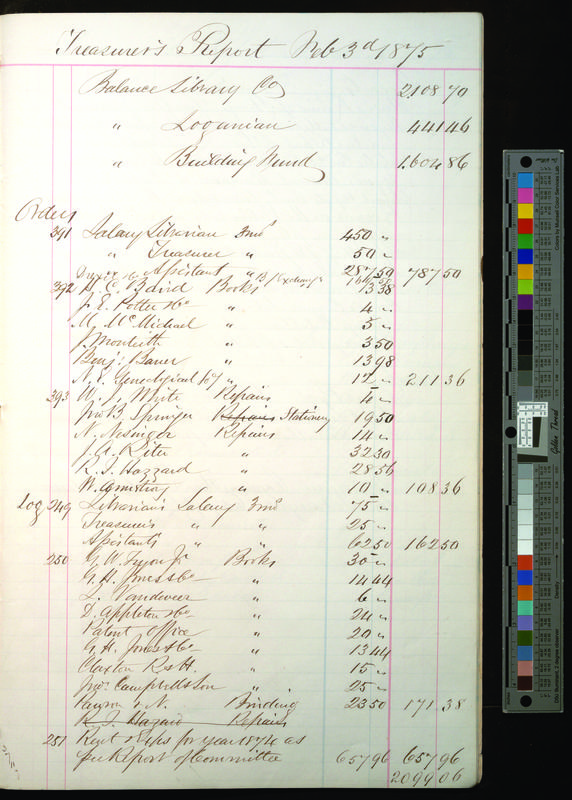 Treasurer's Report Feb 3d 1875
Balance Library Co 2,108 70
" Loganian 441 46
" Building Fund 1,604 86
Orders
391 Salary Librarian 3mos 450 "
" Treasurer " 50 "
" Assistant " 287 50 787 50
392 H. C. Baird Books 13 38
J. E. Potter & Co " 4 "
M. McMichael " 5 "
J. Monteith " 3 50
Benj: Bauer " 13 98
N. E. Genealogical Socy " 12 " 211 36
393 W. J. White Repairs 4 "
Jno B. Springer Repairs Stationery 19 50
N. Nesinger Repairs 14 "
J. A. Kite " 32 30
R. S. Hazzard " 28 56
W. Armstrong " 10 " 108 36
Log 249 Librarian's Salary 3mos 75 "
Treasurer's " " 25 "
Assistant's " " 62 50 162 50
250 G. W. Tryon Jr Books 30 "
G. H. Jones & Co " 14 44
L. Vandeveer " 6 "
D. Appleton & Co " 24 "
Patent Office " 20 "
G. H. Jones & Co " 13 44
Claxton R & H. " 15 "
Jno: Campbell & Son " 25 "
Payson & N. Binding 23 50 171 38
Repairs
251 Rent for year 1874 as
per Report of Committee 657 96 657 96
2099 06